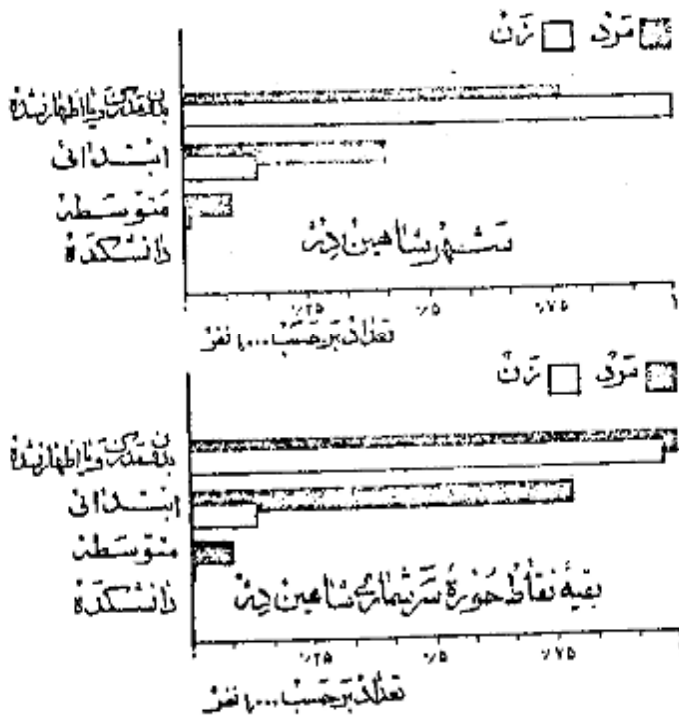 مرد زن
بدون مدرک و یا اظهار نشده
ابتدائی
متوسطه
دانشکده
شهر شاهین دژ
۰ ٫۲۵ ٫۵ ٫۷۵ ۱
تعداد بر حسب ۱۰۰۰ نفر
مرد زن
بدون مدرک و یا اظهار نشده
ابتدائی
متوسطه
دانشکده
بقیه نقاط حوزه سرشماری شاهین دژ
٫۲۵ ٫۵ ٫۷۵ ۱
تعداد بر حسب ۱۰۰۰ نفر